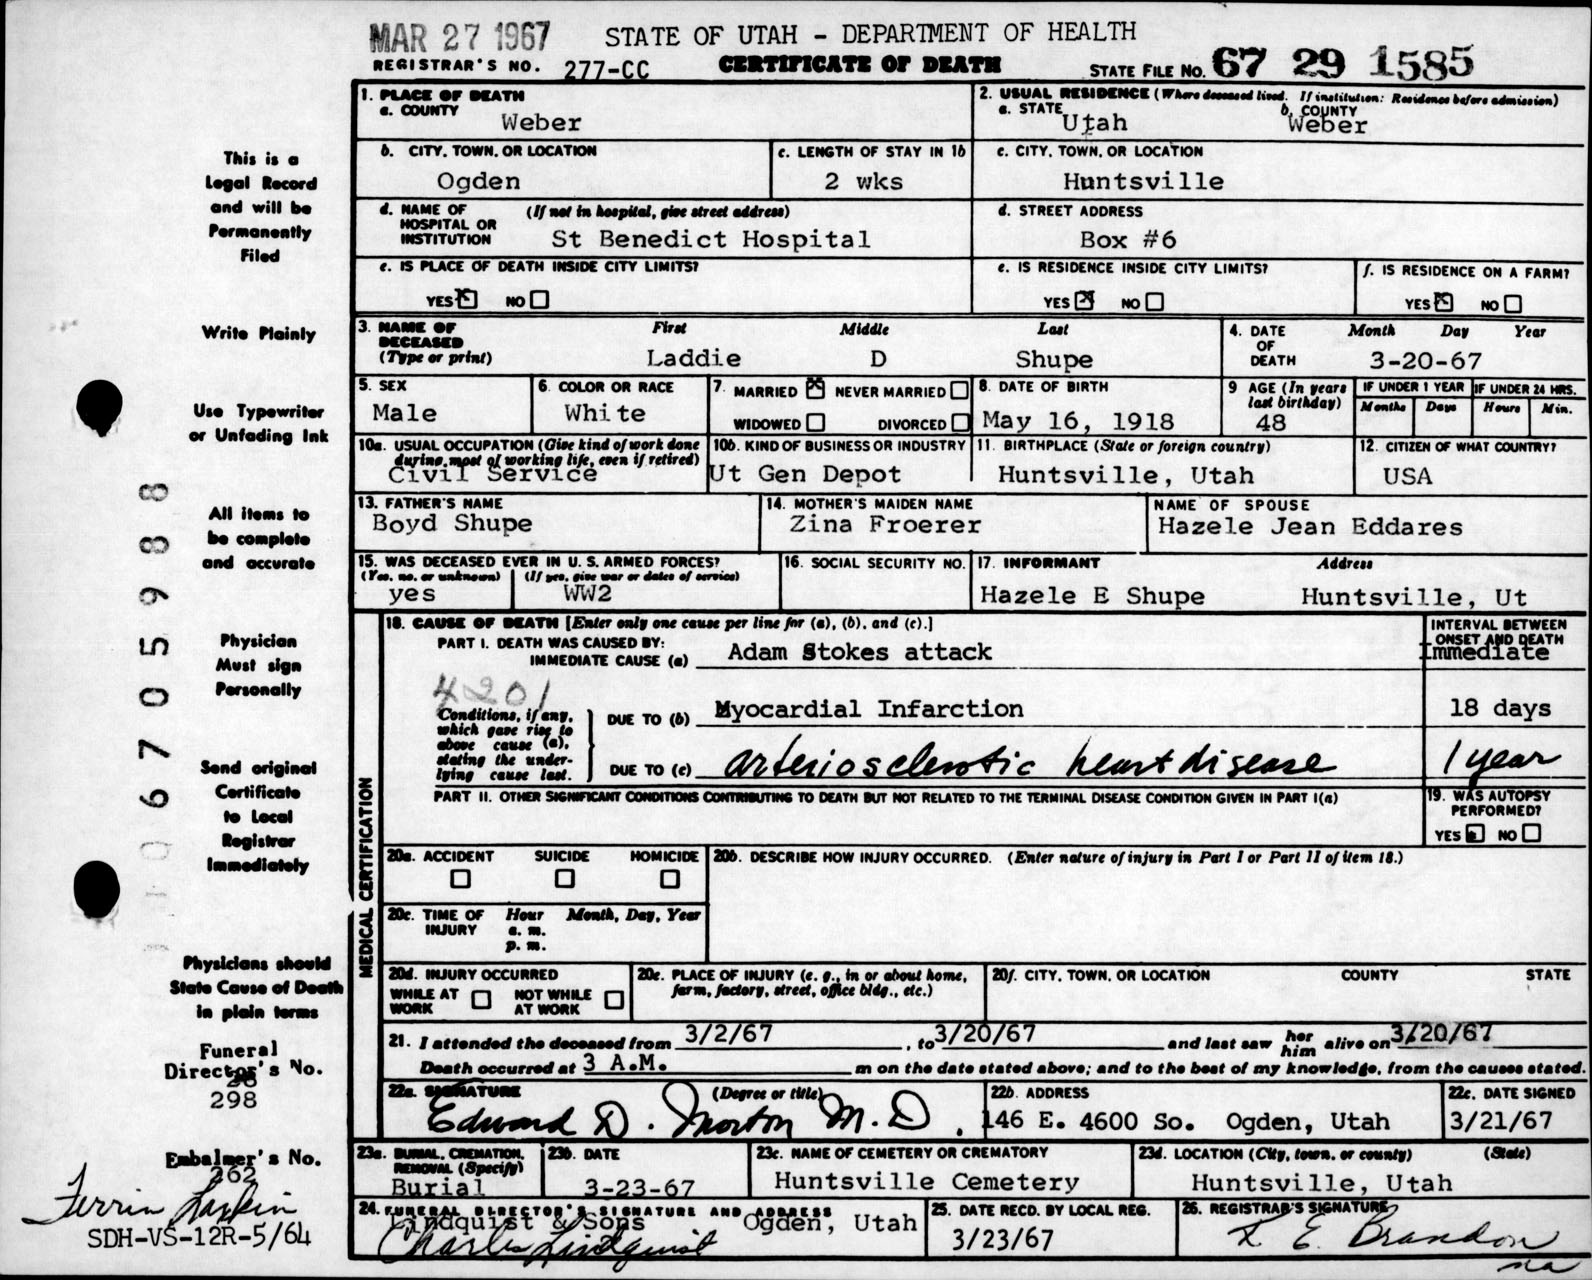 MAR 27 1967 STATE OF UTAH - DEPARTMENT OF HEALTH
REGISTRAR'S NO. 277-CC CERTIFICATE OF DEATH STATE FILE NO. 67 29 1585
1. PLACE OF DEATH
a. COUNTY
Weber
2. USUAL RESIDENCE (Where deceased lived. If institution: Residence before admission)
a. STATE Utah b. COUNTY Weber
b. CITY, TOWN, OR LOCATION
Ogden
c. LENGTH OF STAY IN 1b
2 wks
c. CITY, TOWN, OR LOCATION
Huntsville
d. NAME OF HOSPITAL OR INSTITUTION (If not in hospital, give street address)
St Benedict Hospital
d. STREET ADDRESS
Box #6
e. IS PLACE OF DEATH INSIDE CITY LIMITS?
YES NO
e. IS RESIDENCE INSIDE CITY LIMITS?
YES NO
f. IS RESIDENCE ON A FARM?
YES NO
3. NAME OF DECEASED (Type or print) First Middle Last
Laddie D Shupe
4. DATE OF DEATH Month Day Year
3-20-67
5. SEX
Male
6. COLOR OR RACE
White
7. MARRIED NEVER MARRIED
WIDOWED DIVORCED
8. DATE OF BIRTH
May 16, 1918
9 AGE (In years last birthday)
48
IF UNDER 1 YEAR IF UNDER 24 HRS.
Months Days Hours Min.
10a. USUAL OCCUPATION (Give kind of work done during most of working life, even if retired)
Civil Service
10b. KIND OF BUSINESS OR INDUSTRY
Ut Gen Depot
11. BIRTHPLACE (State or foreign country)
Huntsville, Utah
12. CITIZEN OF WHAT COUNTRY?
USA
13. FATHER'S NAME
Boyd Shupe
14. MOTHER'S MAIDEN NAME
Zina Froerer
NAME OF SPOUSE
Hazele Jean Eddares
15. WAS DECEASED EVER IN U. S. ARMED FORCES?
(Yes, no, or unknown) (If yes, give war or dates of service)
yes WW2
16. SOCIAL SECURITY NO.
17. INFORMANT Address
Hazele E Shupe Huntsville, Ut
MEDICAL CERTIFICATION
18. CAUSE OF DEATH [Enter only one cause per line for (a), (b), and (c).]
INTERVAL BETWEEN ONSET AND DEATH
PART I. DEATH WAS CAUSED BY:
IMMEDIATE CAUSE (a) Adam Stokes attack Immediate
4201
Conditions, if any, which gave rise to above cause (a), stating the underlying cause last.
DUE TO (b) Myocardial Infarction 18 days
DUE TO (c) arteriosclerotic heart disease 1 year
PART II. OTHER SIGNIFICANT CONDITIONS CONTRIBUTING TO DEATH BUT NOT RELATED TO THE TERMINAL DISEASE CONDITION GIVEN IN PART I(a)
19. WAS AUTOPSY PERFORMED?
YES NO
20a. ACCIDENT SUICIDE HOMICIDE
20b. DESCRIBE HOW INJURY OCCURRED. (Enter nature of injury in Part I or Part II of item 18.)
20c. TIME OF INJURY Hour Month, Day, Year
a. m.
p. m.
20d. INJURY OCCURRED
WHILE AT WORK NOT WHILE AT WORK
20e. PLACE OF INJURY (e. g., in or about home, farm, factory, street, office bldg., etc.)
20f. CITY, TOWN, OR LOCATION COUNTY STATE
21. I attended the deceased from 3/2/67, to 3/20/67 and last saw her him alive on 3/20/67
Death occurred at 3 A.M. m on the date stated above; and to the best of my knowledge, from the causes stated.
22a. SIGNATURE (Degree or title)
Edward D. Morton M.D.
22b. ADDRESS
146 E. 4600 So. Ogden, Utah
22c. DATE SIGNED
3/21/67
23a. BURIAL, CREMATION, REMOVAL (Specify)
Burial
23b. DATE
3-23-67
23c. NAME OF CEMETERY OR CREMATORY
Huntsville Cemetery
23d. LOCATION (City, town, or county) (State)
Huntsville, Utah
24. FUNERAL DIRECTOR'S SIGNATURE AND ADDRESS
Lindquist & Sons Ogden, Utah
Charles Lindquist
25. DATE RECD. BY LOCAL REG.
3/23/67
26. REGISTRAR'S SIGNATURE
R E Brandon
na
This is a
Legal Record
and will be
Permanently
Filed
Write Plainly
Use Typewriter
or Unfading Ink
All items to
be complete
and accurate
Physician
Must sign
Personally
Send original
Certificate
to Local
Registrar
Immediately
Physicians should
State Cause of Death
in plain terms
Funeral
Director's No.
298
Embalmer's No.
262
Ferrin Larkin
SDH-VS-12R-5/64
006705988